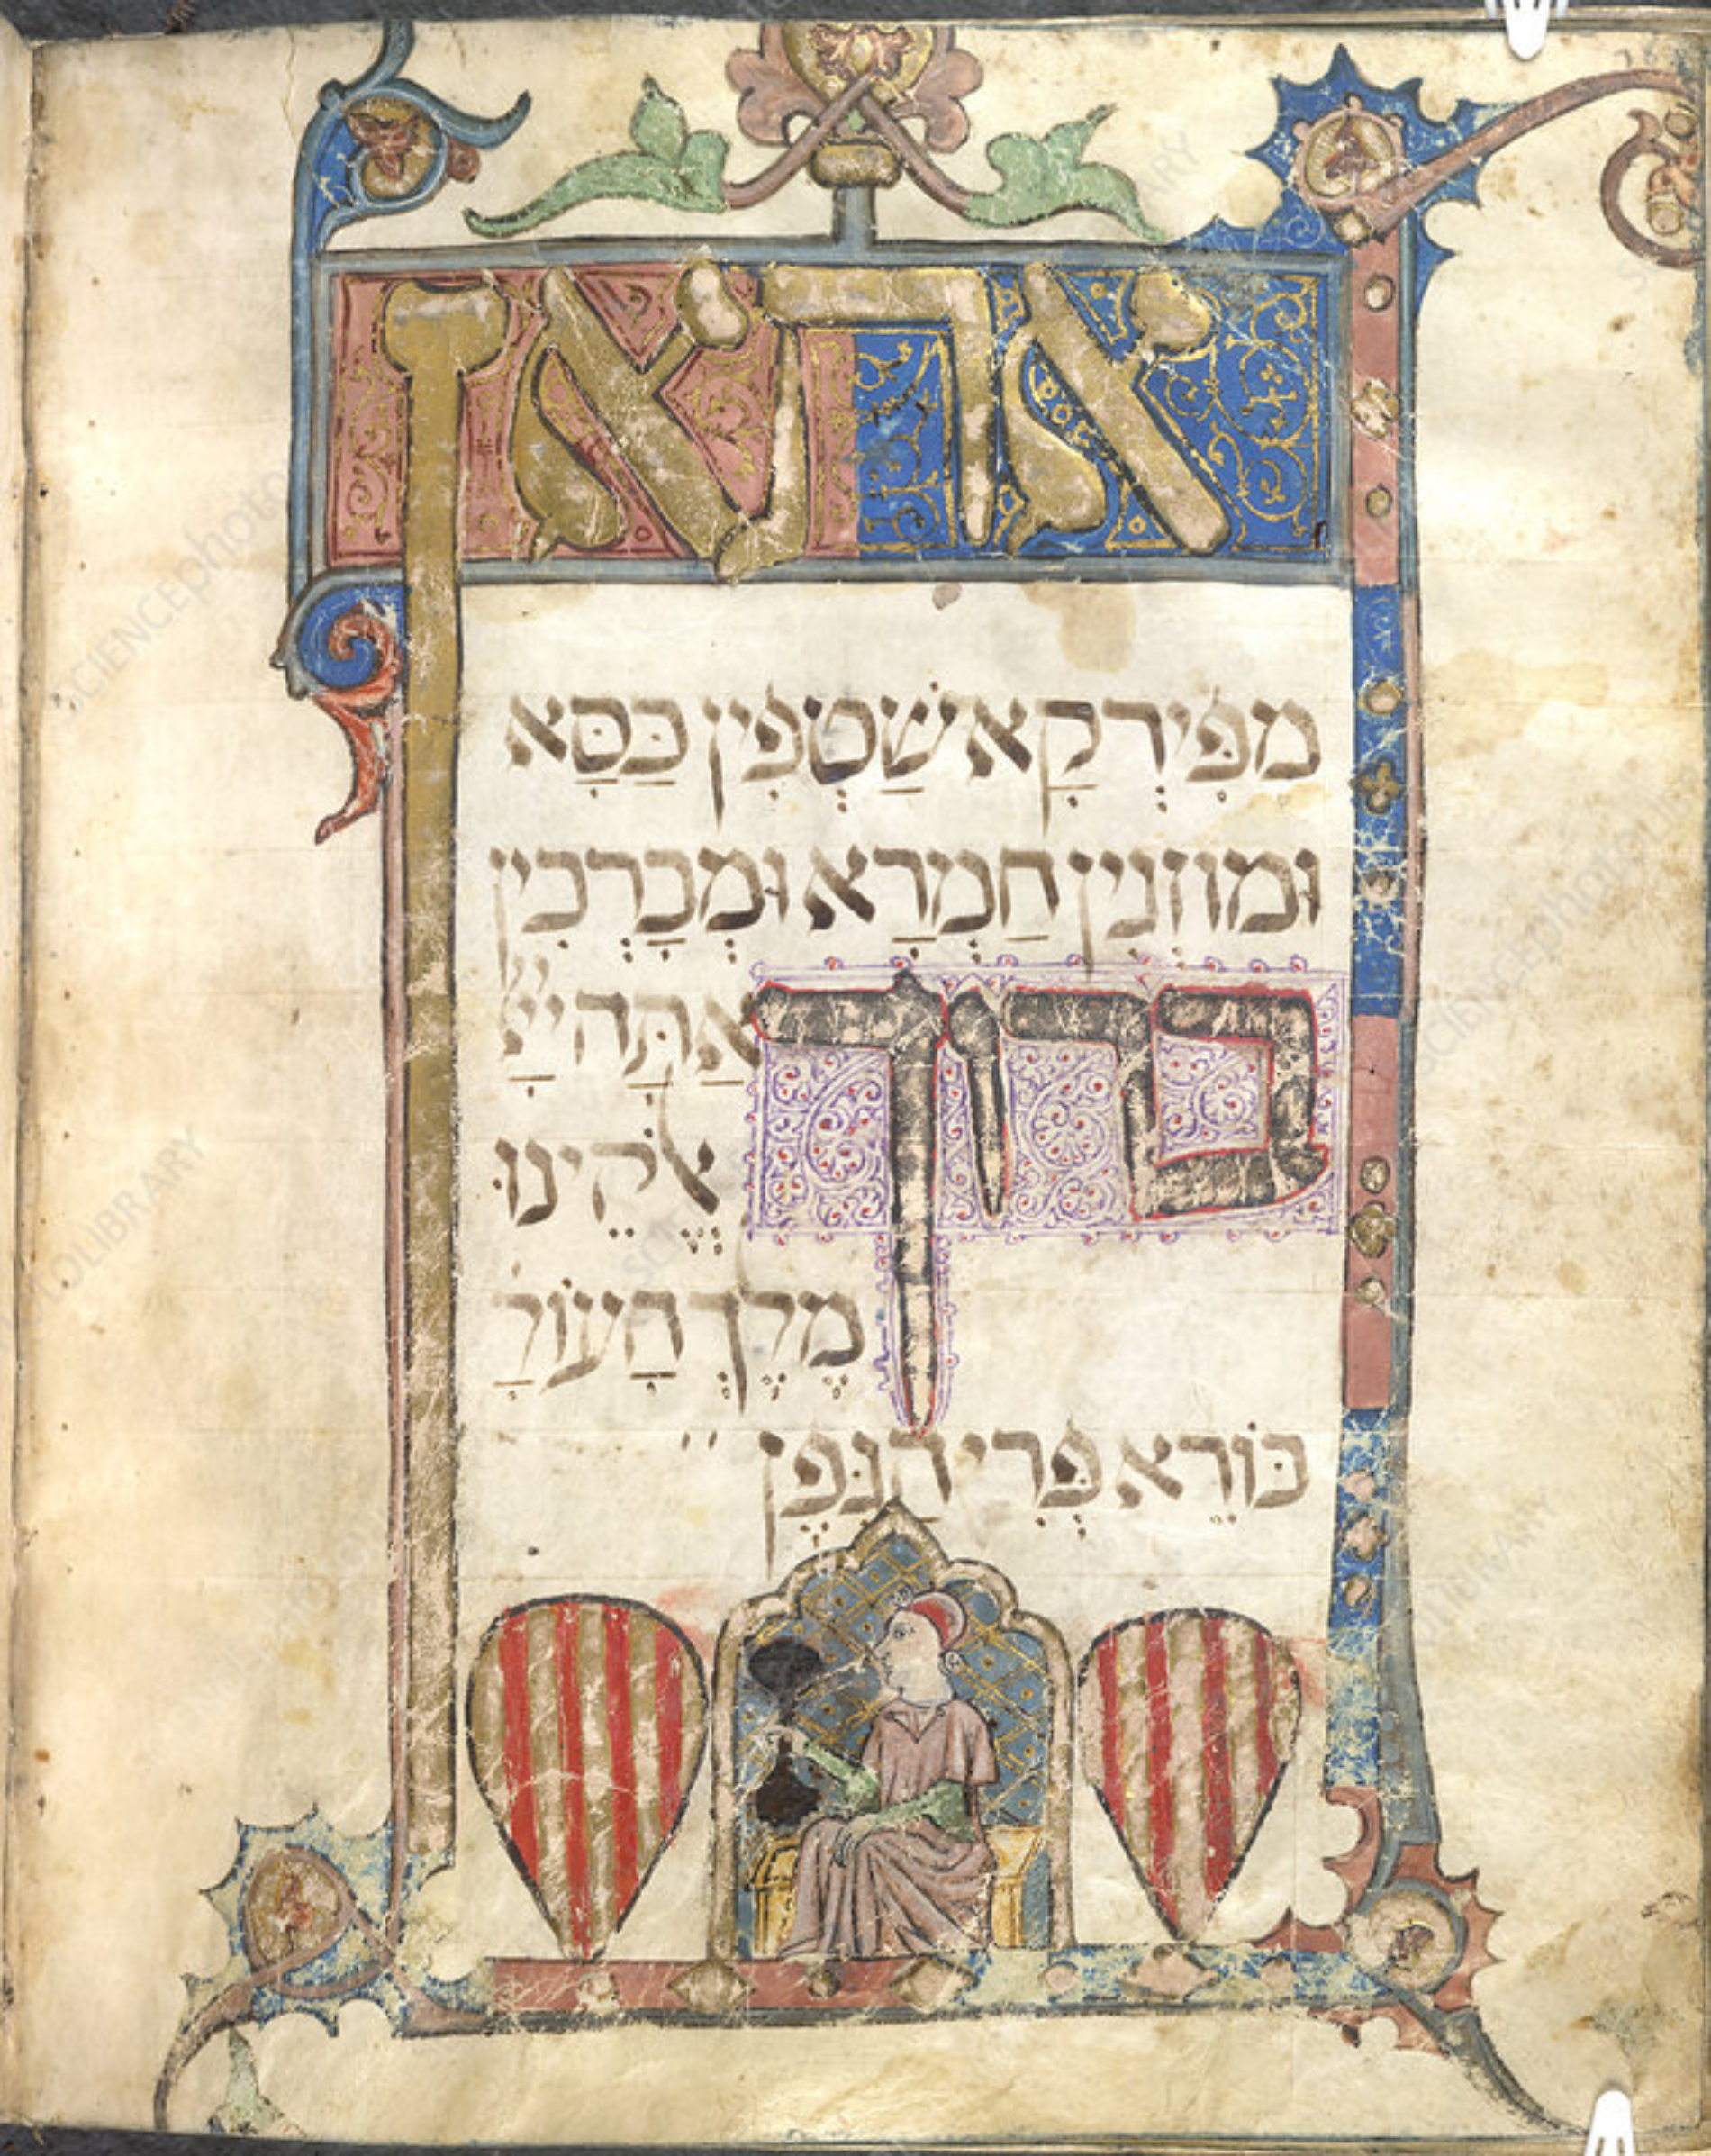 אתאן
מִפִּירְקָא שַׁטְפִין כַּסָּא
וּמוזְגִין חַמְרָא וּמְבָרְכִין
ברוך אַתָּה יְיָ
אֱלֹקֵינוּ
מֶלֶךְ הָעוֹלָ
בּוֹרֵא פְּרִי הַגֶּפֶן
SCIENCEphotoLIBRARY